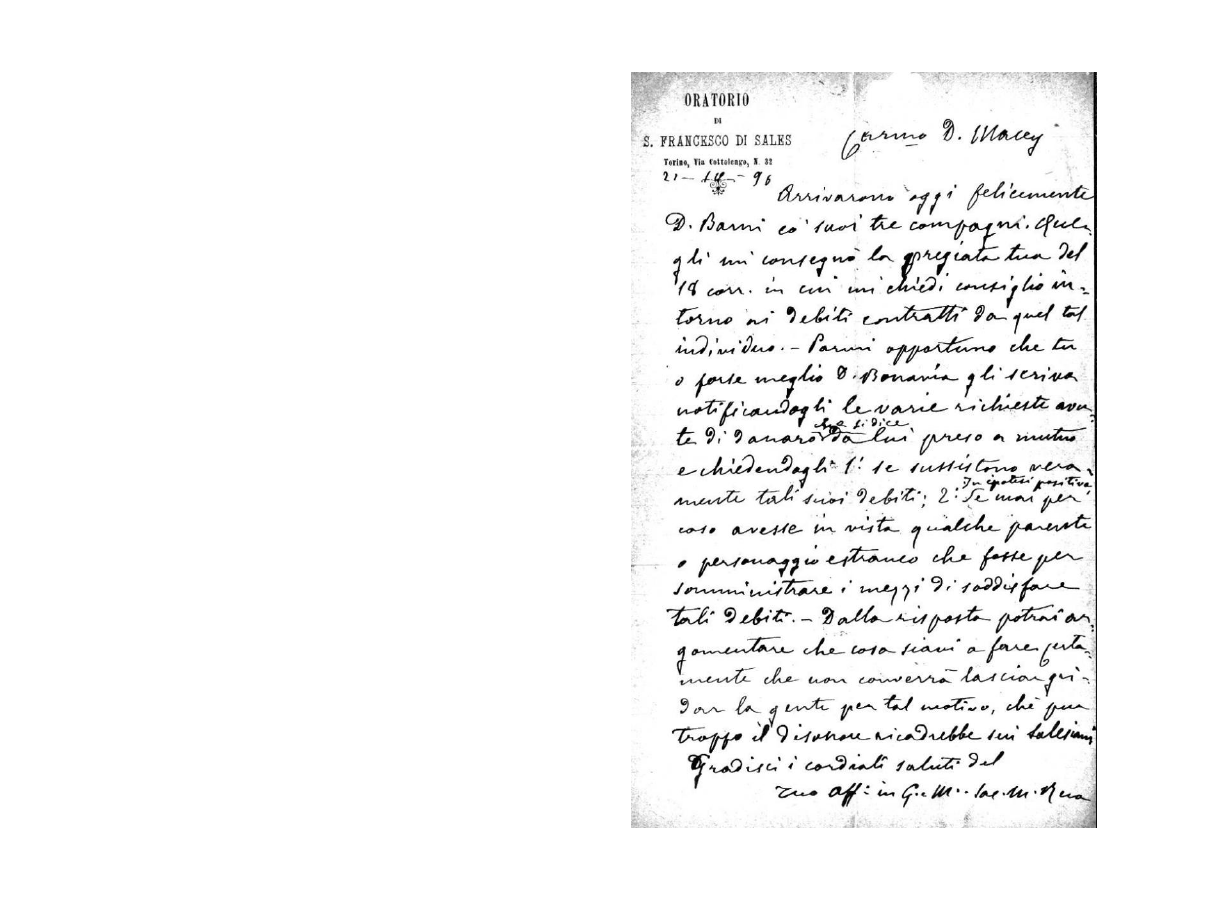 ORATORIO
DI
S. FRANCESCO DI SALES
Torino, Via Cottolengo, N. 32
21 — — 96
Carmo D. Macey
Arrivarono oggi felicemente
D. Barni co' suoi tre compagni. Que-
gli mi consegnò la pregiata tua del
18 corr. in cui mi chiedi consiglio in-
torno ai debiti contratti da quel tal
individuo. – Parmi opportuno che tu
o forse meglio D. Bonavia gli scriva
notificandogli le varie richieste avu-
te di danaro che si dice da lui preso a mutuo
e chiedendogli 1.° se sussistono vera-
mente tali suoi debiti; 2.° In ipotesi positiva Se mai per
caso avesse in vista qualche parente
o personaggio estraneo che fosse per
somministrare i mezzi di soddisfare
tali debiti. – Dalla risposta potrai ar-
gomentare che cosa siavi a fare certa-
mente che non converrà lasciar gri-
dar la gente per tal motivo, chè pur
troppo il disonore ricadrebbe sui Salesiani
Gradisci i cordiali saluti del
Tuo aff.° in G. e M. Sac. M. Rua